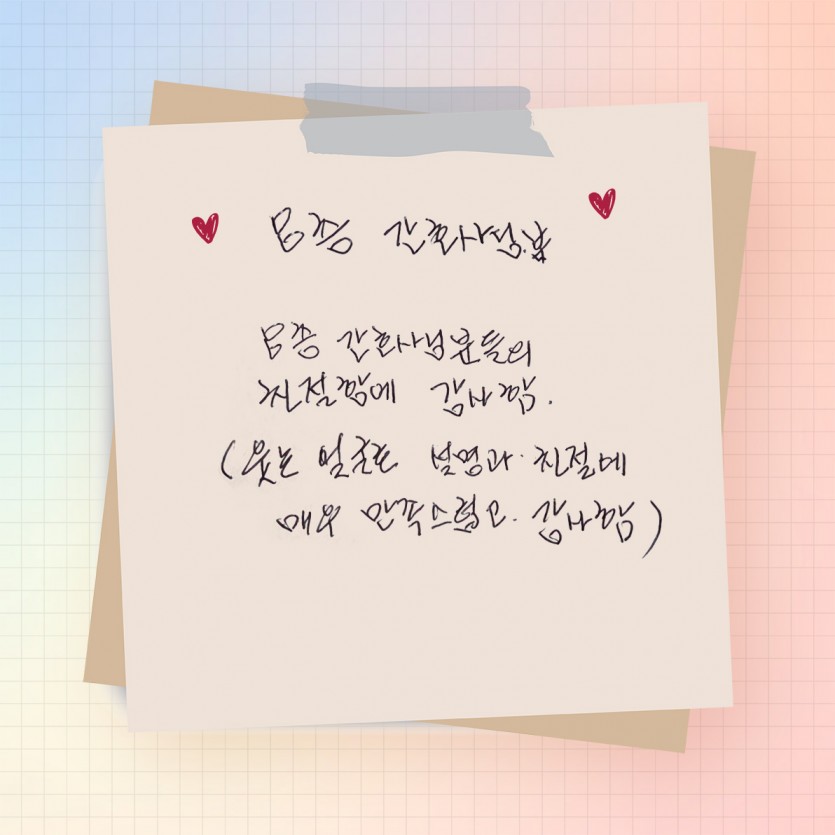 간호사님
간호사님분들의
친절함에 감사함.
(웃는 얼굴로 설명과 친절에
매우 만족스럽고. 감사함)